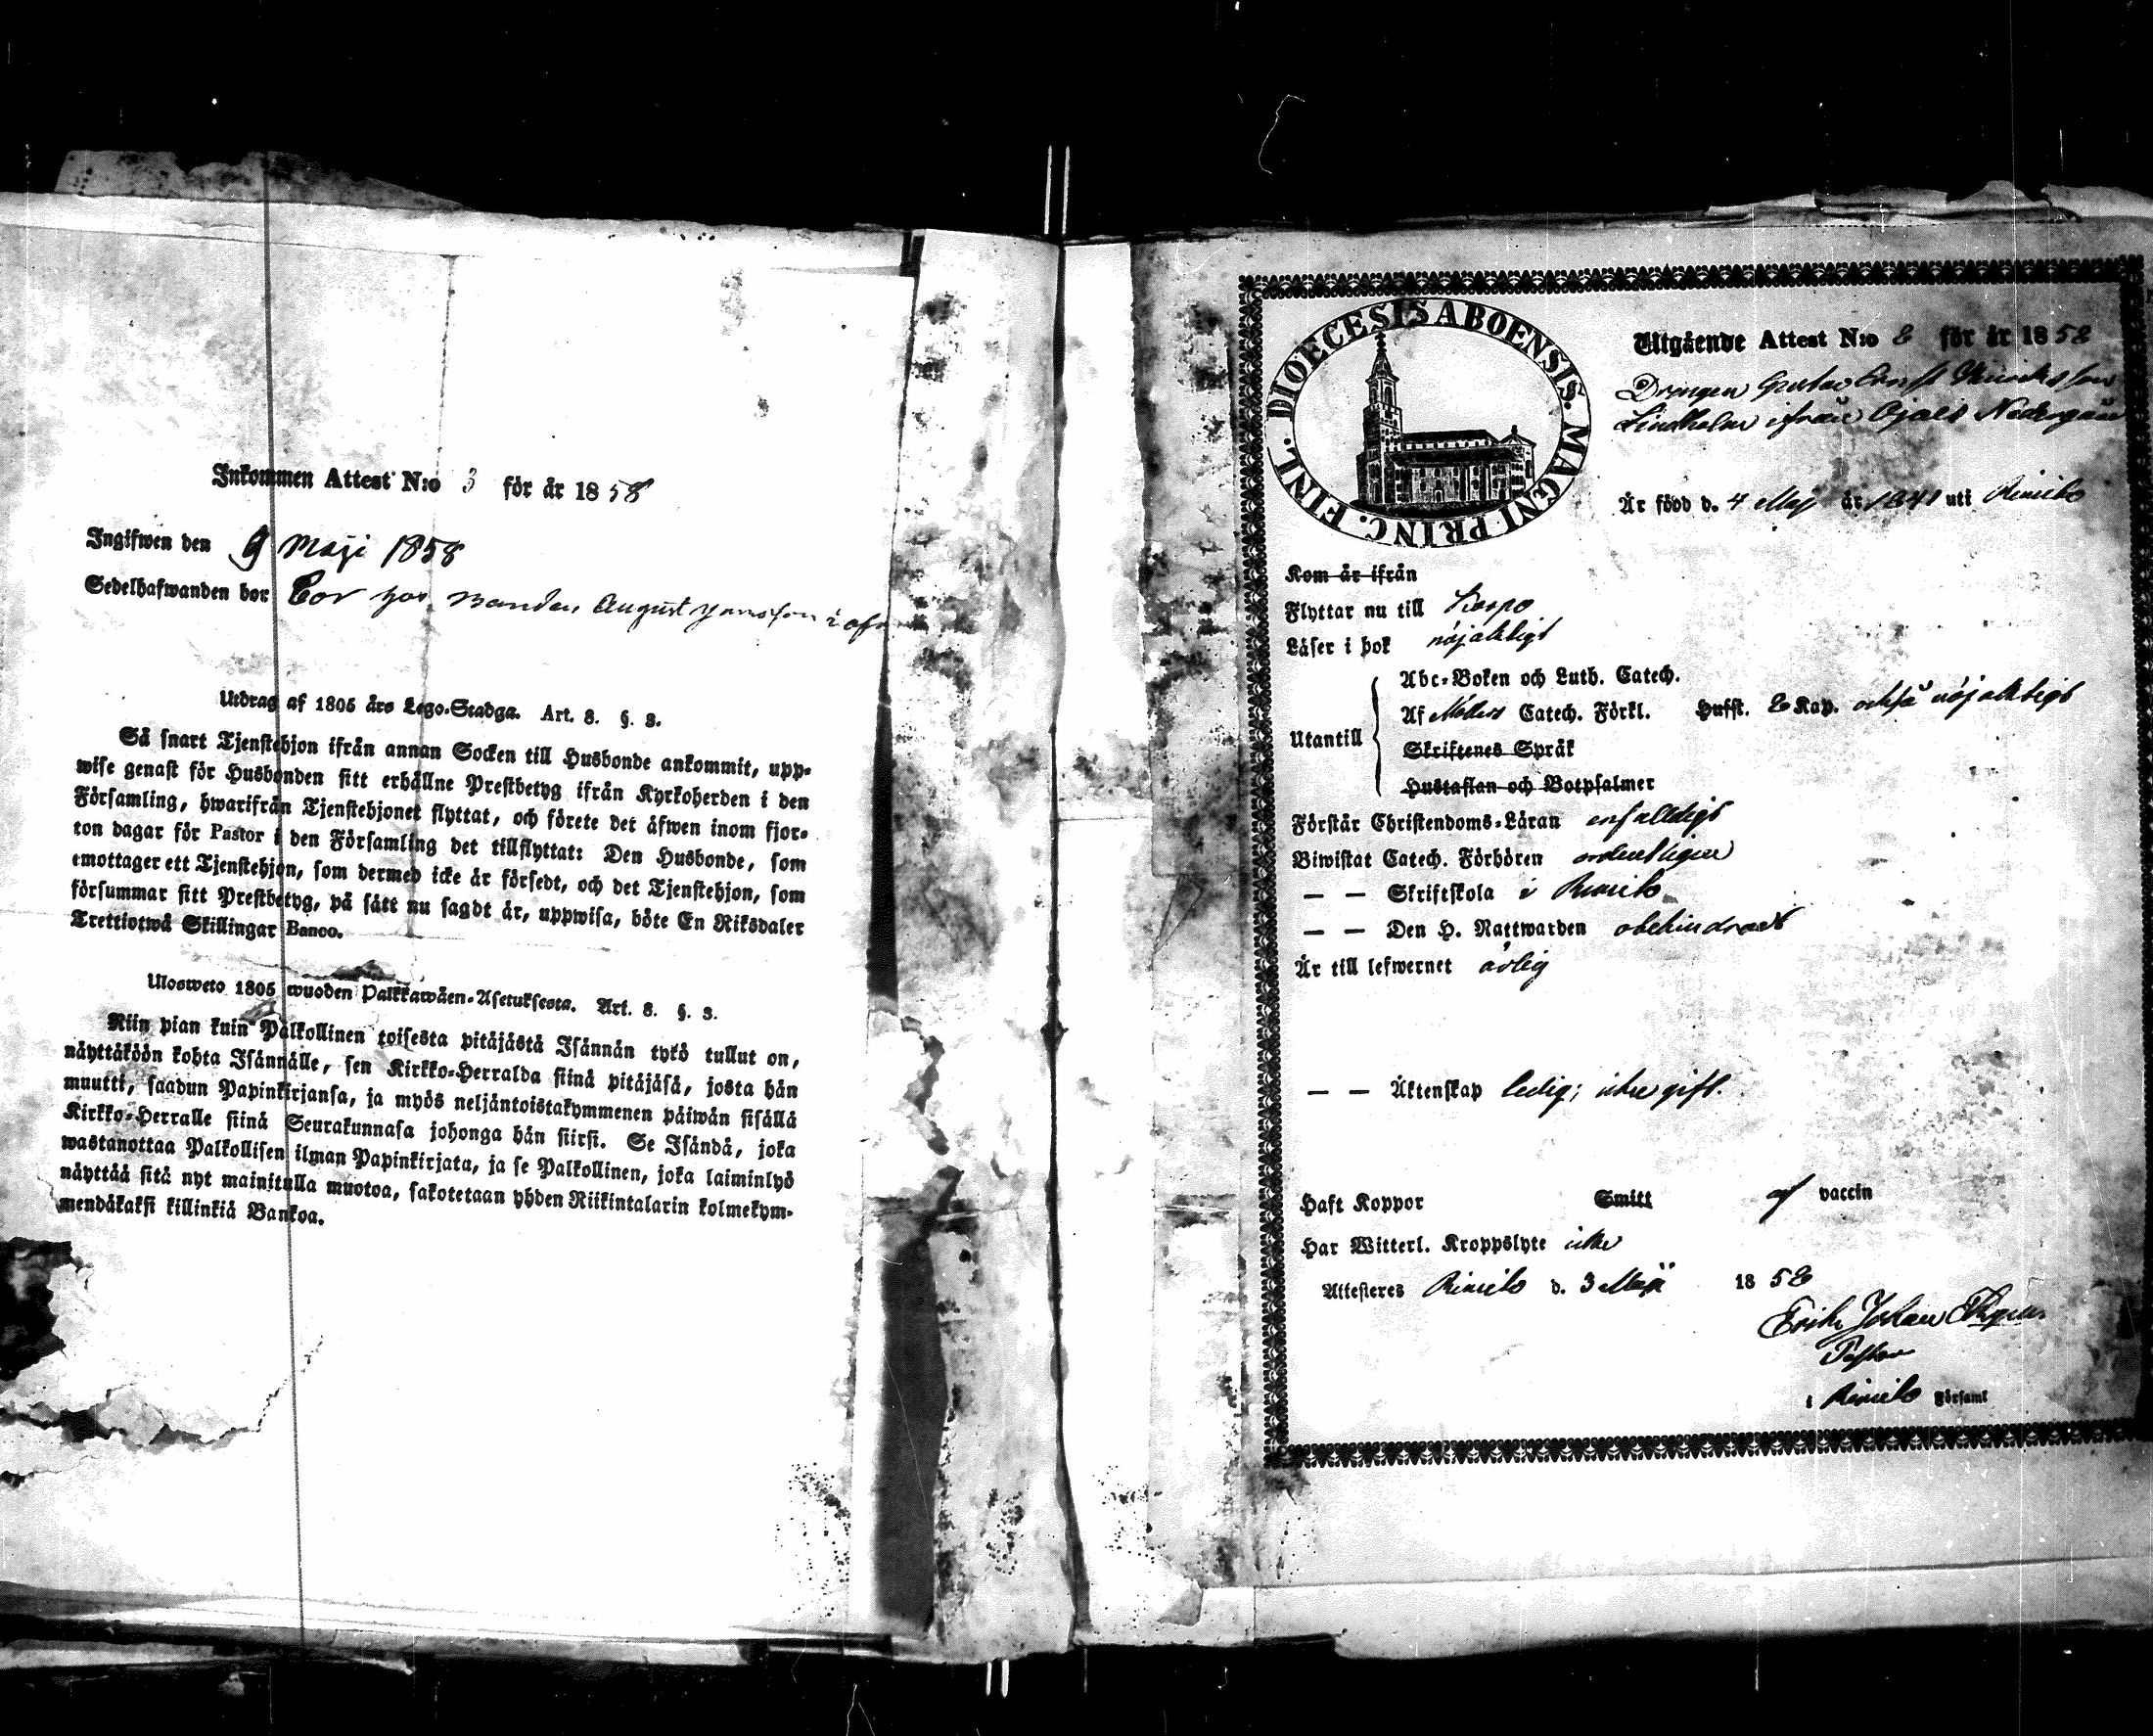 Inkommen Attest N:o 3 för år 1858
Ingifwen den 9 Maji 1858
Sedelhafwanden bor Bor hos Bonden August Jansson i
Utdrag af 1805 års Lego-Stadga. Art. 8. §. 3.
Så snart Tjenstehjon ifrån annan Socken till Husbonde ankommit, upp-
wise genast för Husbonden sitt erhållne Prestbetyg ifrån Kyrkoherden i den
Församling, hwarifrån Tjenstehjonet flyttat, och förete det äfwen inom fjor-
ton dagar för Pastor i den Församling det tillflyttat: Den Husbonde, som
emottager ett Tjenstehjon, som dermed icke är försedt, och det Tjenstehjon, som
försummar sitt Prestbetyg, på sätt nu sagdt är, uppwisa, böte En Riksdaler
Trettiotwå Skillingar Banco.
Ulosweto 1805 wuoden Palkkawäen-Asetuksesta. Art. 8. §. 3.
Niin pian kuin Palkollinen toisesta pitäjästä Isännän tykö tullut on,
näyttäköön kohta Isännälle, sen Kirkko-Herralda siinä pitäjäsä, josta hän
muutti, saadun Papinkirjansa, ja myös neljäntoistakymmenen päiwän sisällä
Kirkko-Herralle siinä Seurakunnasa johonga hän siirsi. Se Isändä, joka
wastanottaa Palkollisen ilman Papinkirjata, ja se Palkollinen, joka laiminlyö
näyttää sitä nyt mainitulla muotoa, sakotetaan yhden Riikintalarin kolmekym-
mendäkaksi killinkiä Bankoa.
DIOECESIS ABOENSIS. MAGNI PRINC. FINL.
Utgående Attest N:o 8 för år 1858
Drengen Gustav Ernst Henriksson
Lindholm ifrån Ojais Nedergård
Är född d. 4 Maj år 1841 uti Rimito
Kom år ifrån
Flyttar nu till Korpo
Läser i bok nöjaktigt
Abc-Boken och Luth. Catech.
Utantill Af Möllers Catech. Förkl. Hufst. & Kap. också nöjaktigt
Skriftenes Språk
Hustaflan och Botpsalmer
Förstår Christendoms-Läran enfaldigt
Biwistat Catech. Förhören ordentligen
— — Skriftskola i Rimito
— — Den H. Nattwarden obehindradt
Är till lefwernet ärlig
— — Äktenskap ledig; icke gift.
Haft Koppor Smitt af vaccin
Har Witterl. Kroppslyte icke
Attesteres Rimito d. 3 Maji 1858
Erik Johan
Pastor
i Rimito Församl